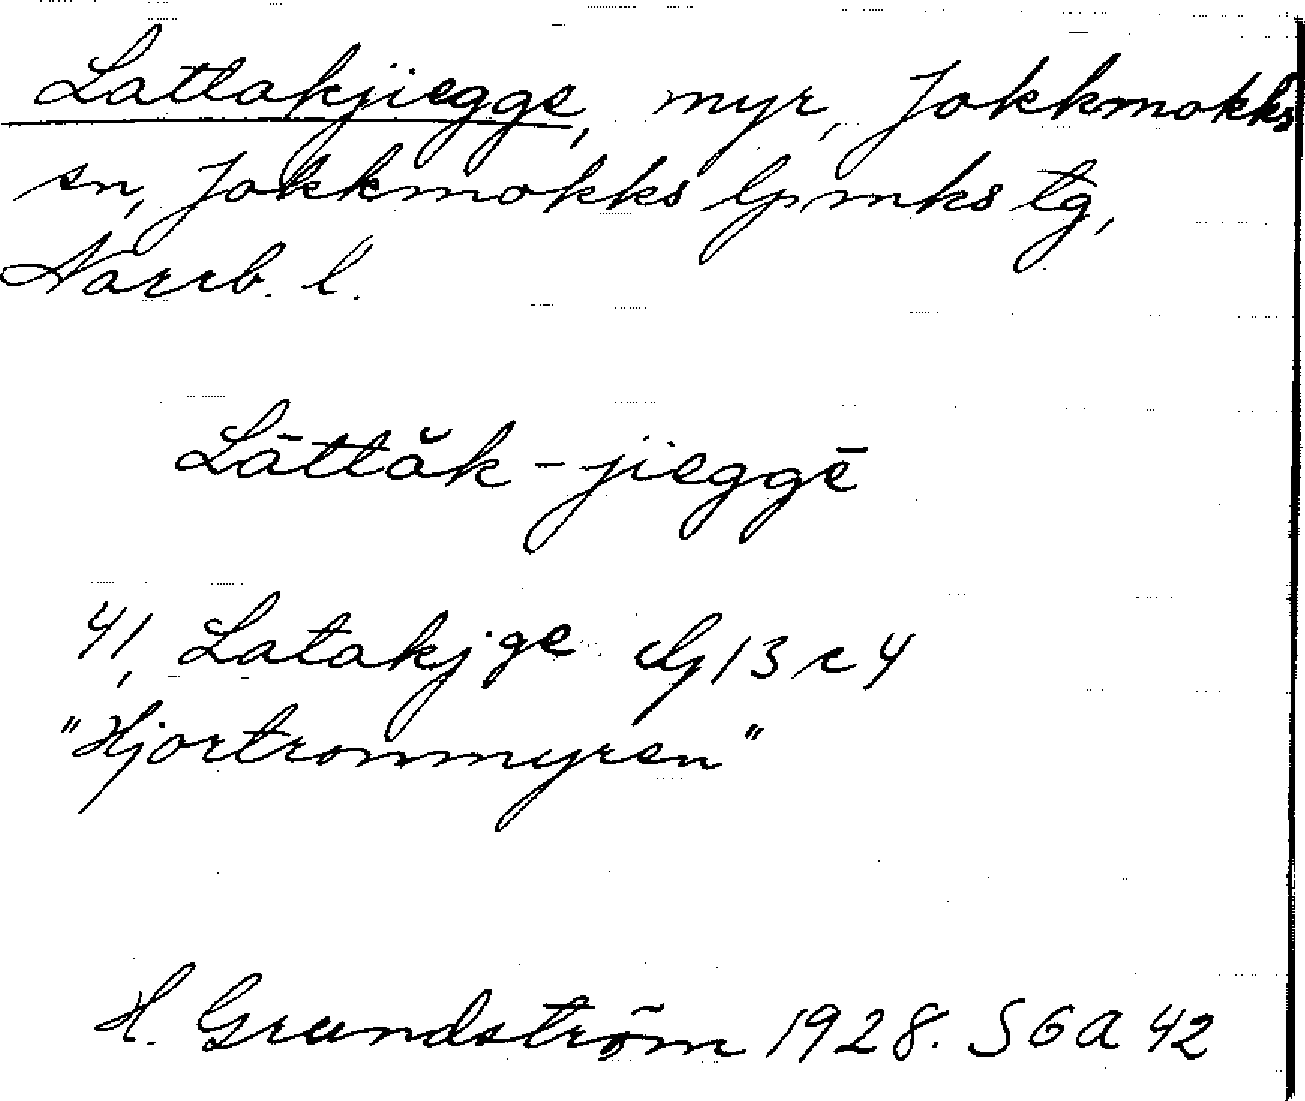 Lattakjiegge, myr, Jokkmokks
sn, Jokkmokks lpmks tg,
Norrb. l.
Lāttăk-jieggē
41, Latakjge dG13c4
"Hjortronmyren"
H. Grundström 1928. SGA 42